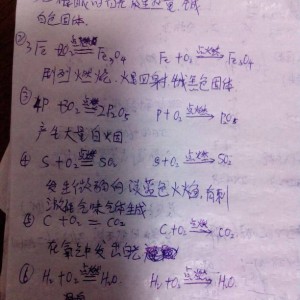 白色固体.
② 3Fe + 2O₂ 点燃 Fe₃O₄ Fe + O₂ 点燃 Fe₃O₄
剧烈燃烧. 火星四射 生成黑色固体
③ 4P + 5O₂ 点燃 2P₂O₅ P + O₂ 点燃 P₂O₅
产生大量白烟
④ S + O₂ 点燃 SO₂ S + O₂ 点燃 SO₂
发生微弱的淡蓝色火焰, 有刺
激性气味气体生成
⑤ C + O₂ = CO₂ C + O₂ 点燃 CO₂
在氧气中发出
⑥ H₂ + O₂ 点燃 H₂O. H₂ + O₂ 点燃 H₂O.